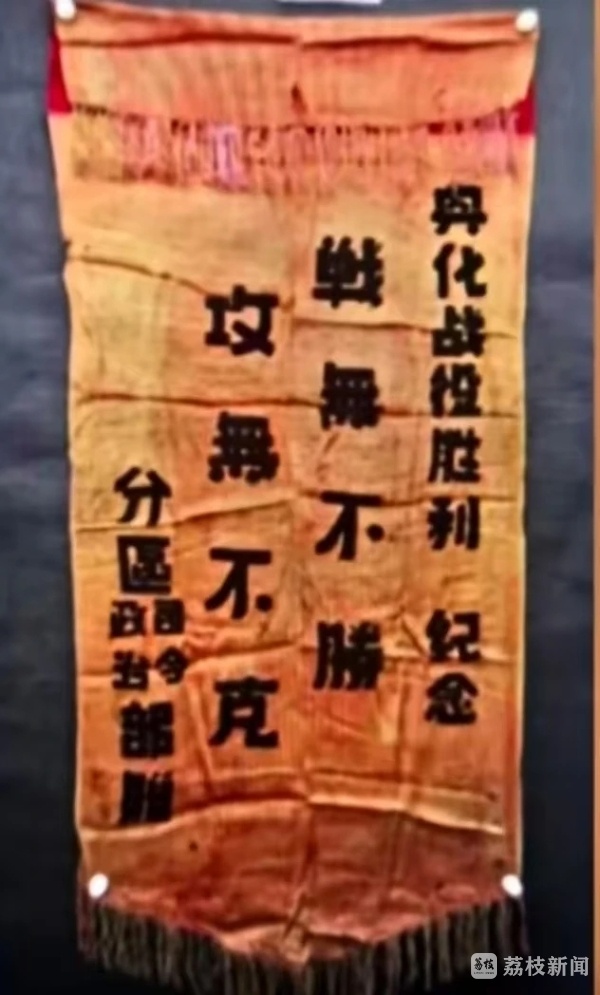 興化战役胜利 纪念
戦無不勝
攻無不克
分區司令政治部贈
荔枝 荔枝新闻